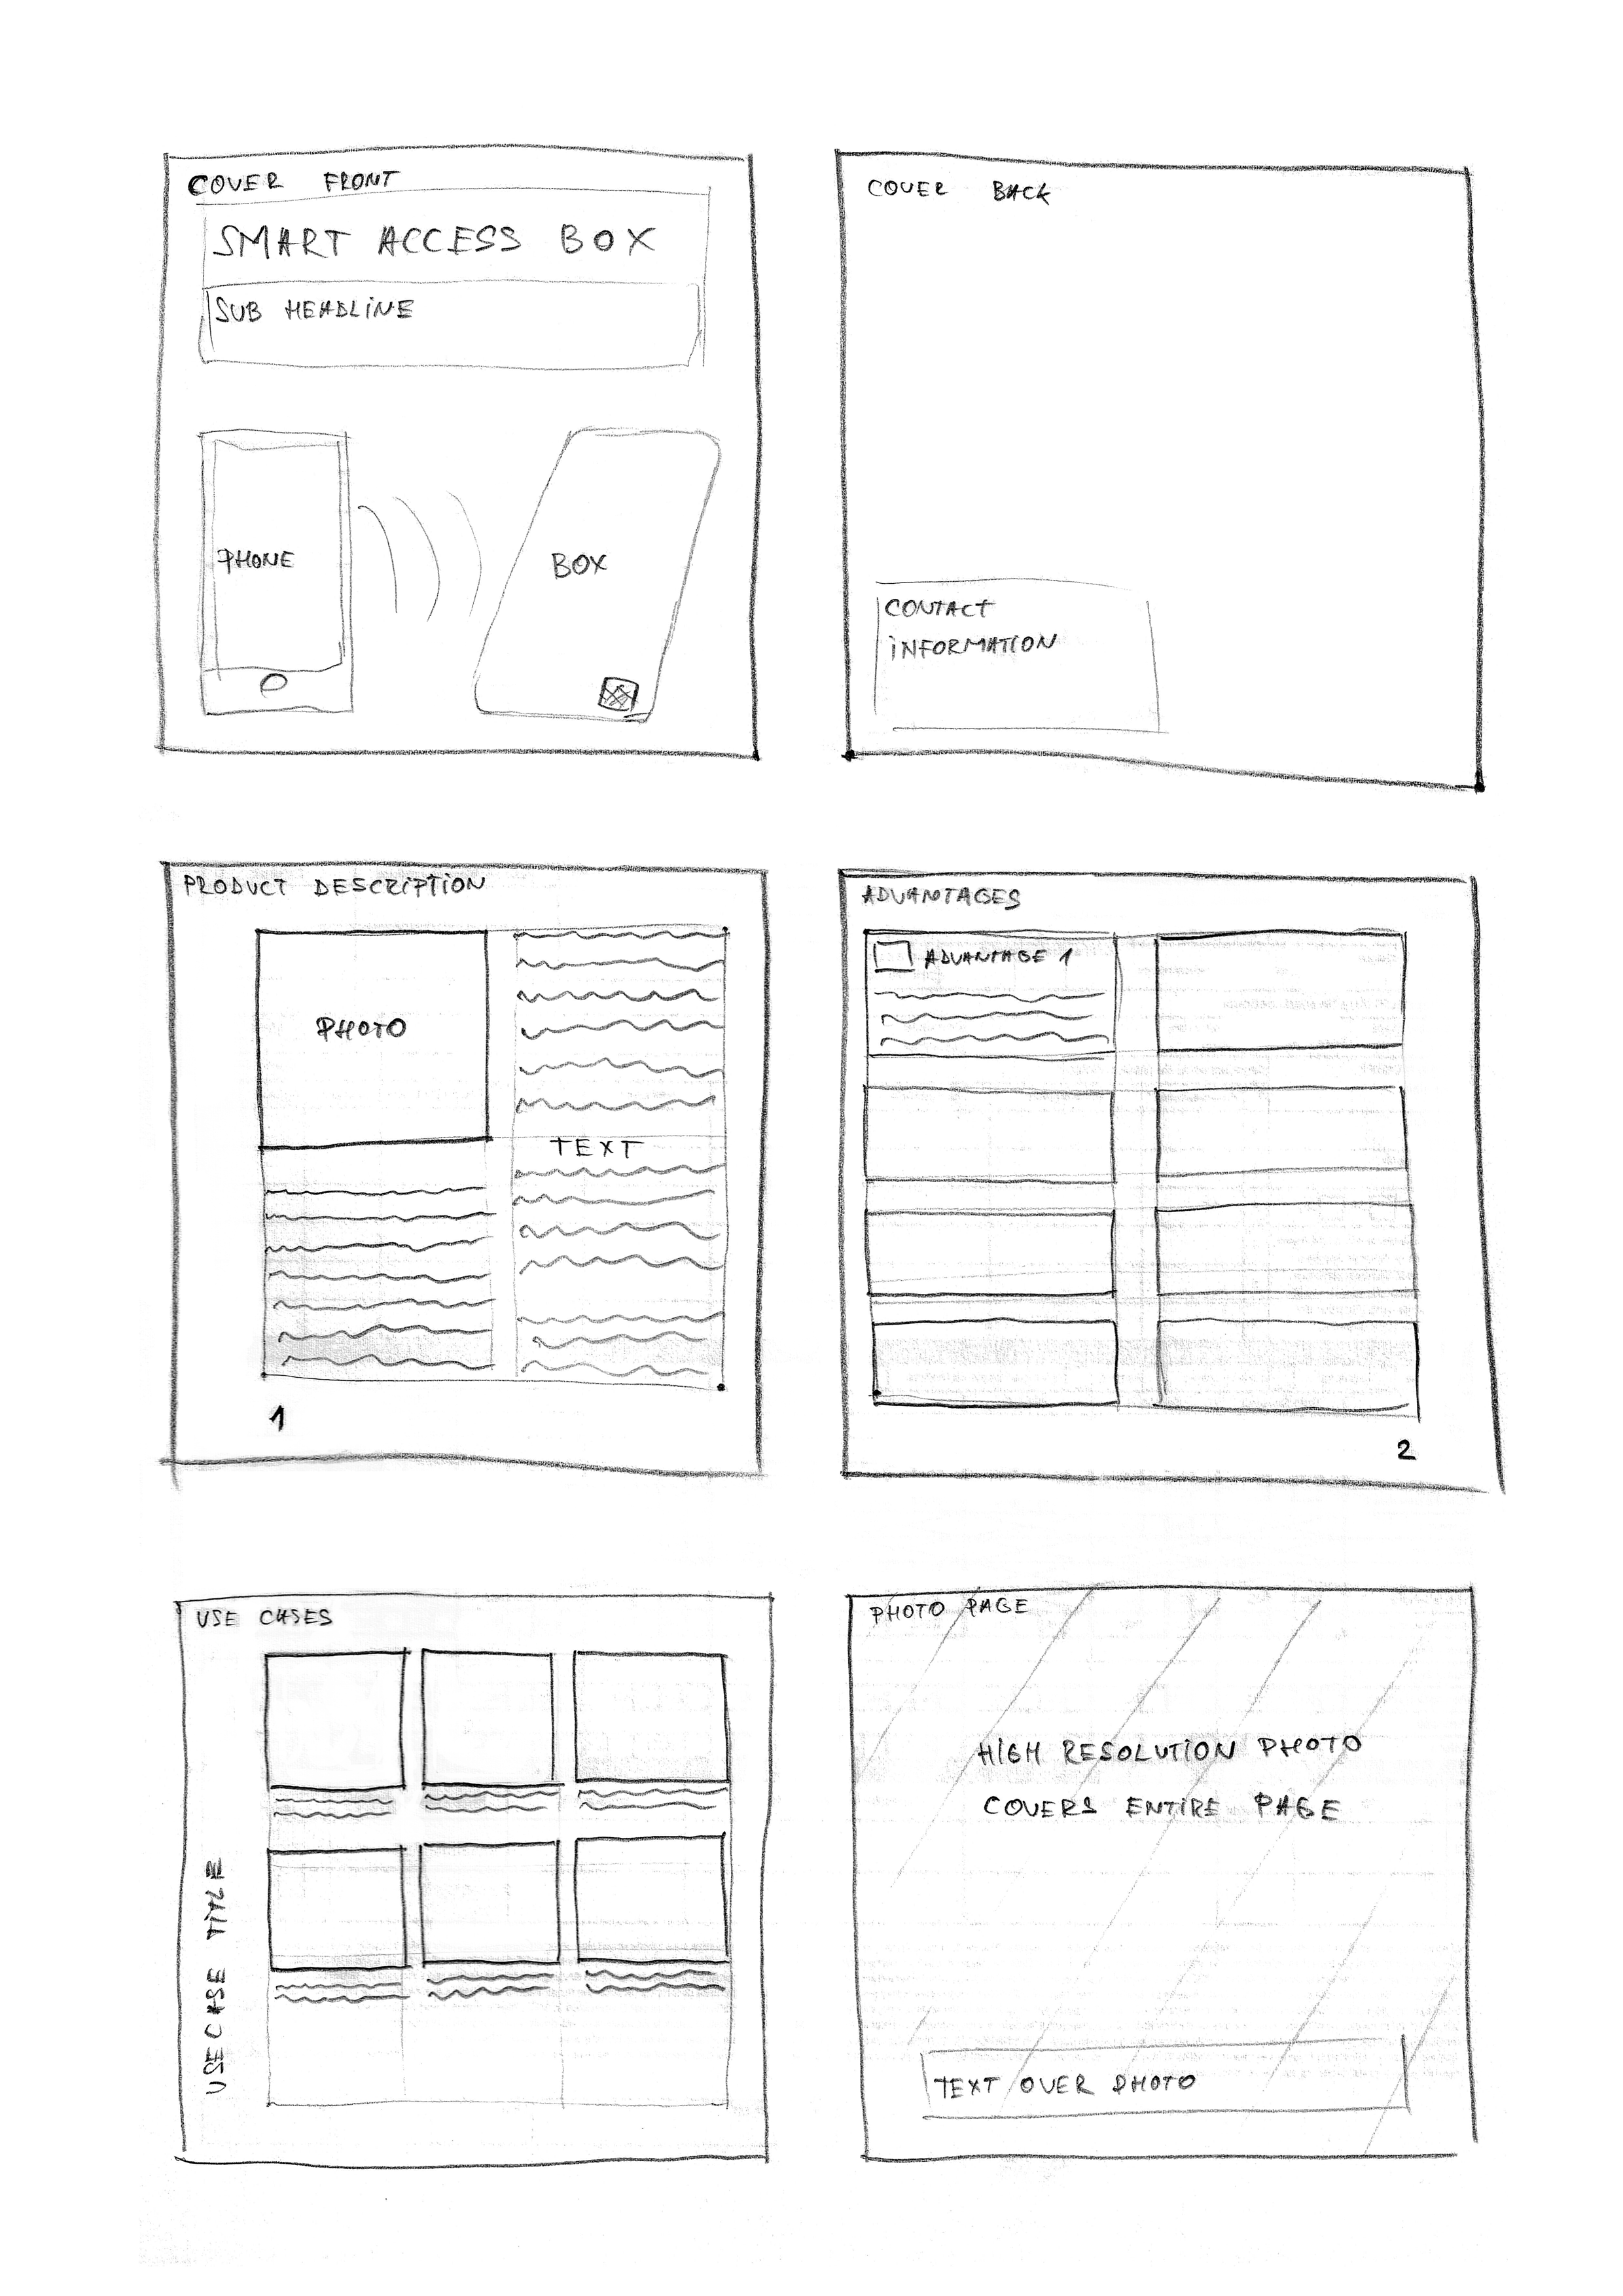 COVER FRONT
SMART ACCESS BOX
SUB HEADLINE
PHONE
BOX
COVER BACK
CONTACT
INFORMATION
PRODUCT DESCRIPTION
PHOTO
TEXT
1
ADVANTAGES
ADVANTAGE 1
2
USE CASES
USE CASE TITLE
PHOTO PAGE
HIGH RESOLUTION PHOTO
COVERS ENTIRE PAGE
TEXT OVER PHOTO